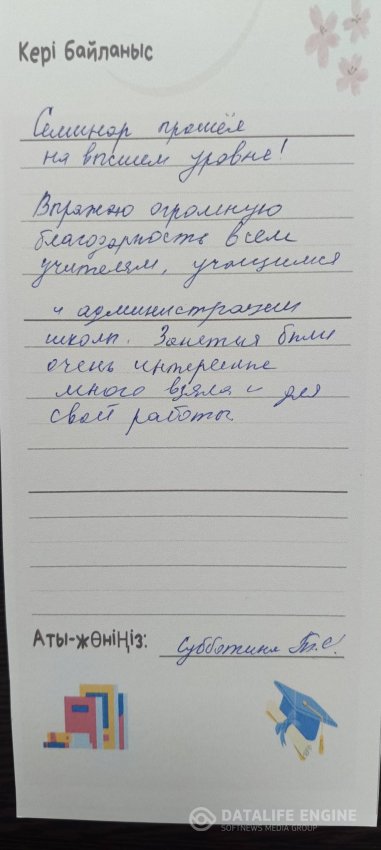 Кері байланыс
Семинар прошёл
на высшем уровне!
Выражаю огромную
благодарность всем
учителям, учащимся
и администрации
школы. Занятия были
очень интересные
много взяла и для
свой работы.
Аты-жөніңіз: Субботина Т.С.
DATALIFE ENGINE
SOFTNEWS MEDIA GROUP